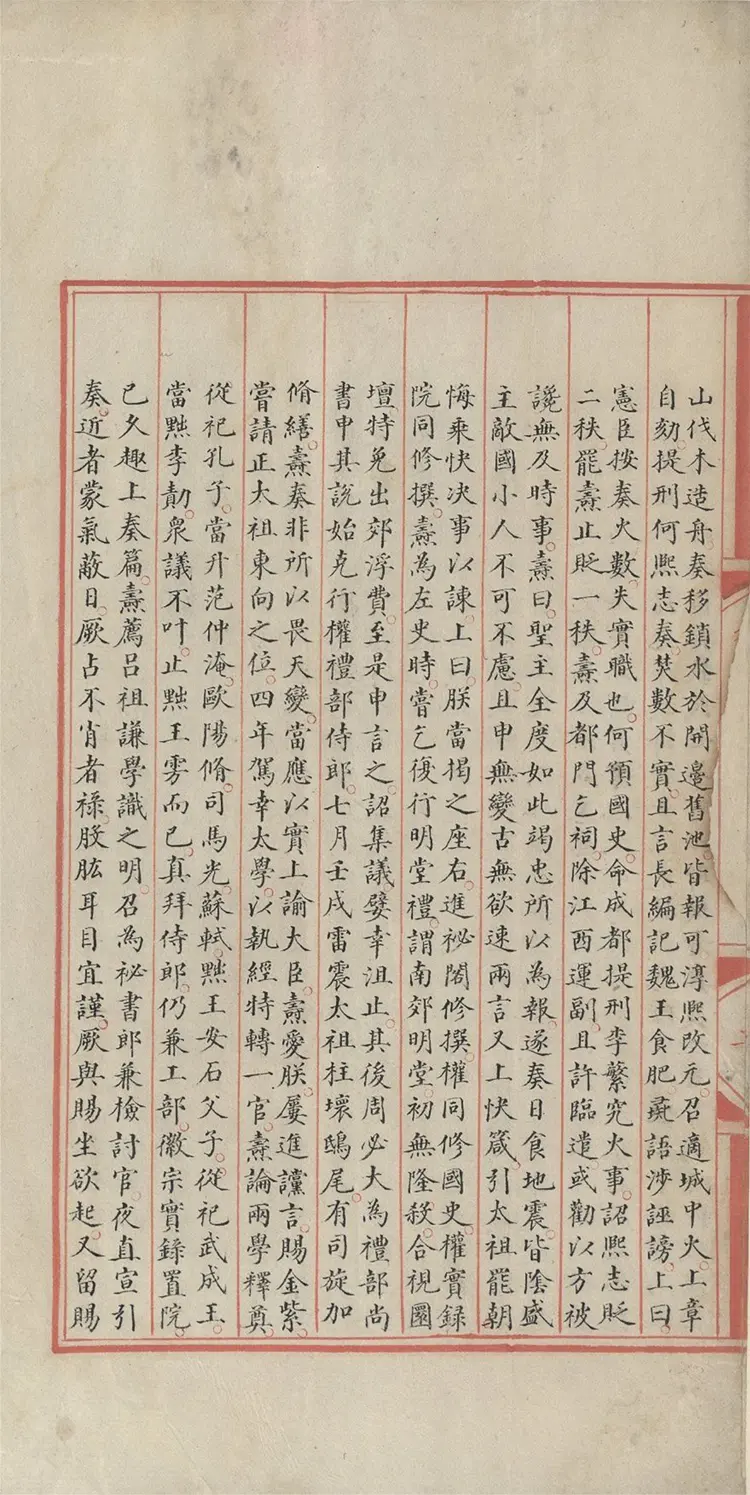 山伐木造舟奏移鎖水於開邊舊池皆報可淳熙改元召適城中火上章
自劾提刑何熙志奏焚數不實且言長編記魏王食肥彘語涉誣謗上曰
憲臣按奏火數失實職也何預國史命成都提刑李蘩究火事詔熙志貶
二秩罷燾止貶一秩燾及都門乞祠除江西運副且許臨遣或勸以方被
讒無及時事燾曰聖主全度如此竭忠所以為報遂奏日食地震皆陰盛
主敵國小人不可不慮且申無變古無欲速兩言又上快箴引太祖罷朝
悔乘快決事以諫上曰朕當揭之座右進祕閣修撰權同修國史權實録
院同修撰燾為左史時嘗乞復行明堂禮謂南郊明堂初無隆殺合視圜
壇特免出郊浮費至是申言之詔集議嬖幸沮止其後周必大為禮部尚
書申其說始克行權禮部侍郎七月壬戌雷震太祖柱壞鴟尾有司旋加
脩繕燾奏非所以畏天變當應以實上諭大臣燾愛朕屢進讜言賜金紫
嘗請正太祖東向之位四年駕幸太學以執經特轉一官燾論兩學釋奠
從祀孔子當升范仲淹歐陽脩司馬光蘇軾黜王安石父子從祀武成王
當黜李勣衆議不叶止黜王雱而已真拜侍郎仍兼工部徽宗實録置院
已久趣上奏篇燾薦呂祖謙學識之明召為祕書郎兼檢討官夜直宣引
奏近者蒙氣蔽日厥占不肖者祿股肱耳目宜謹厥與賜坐欲起又留賜